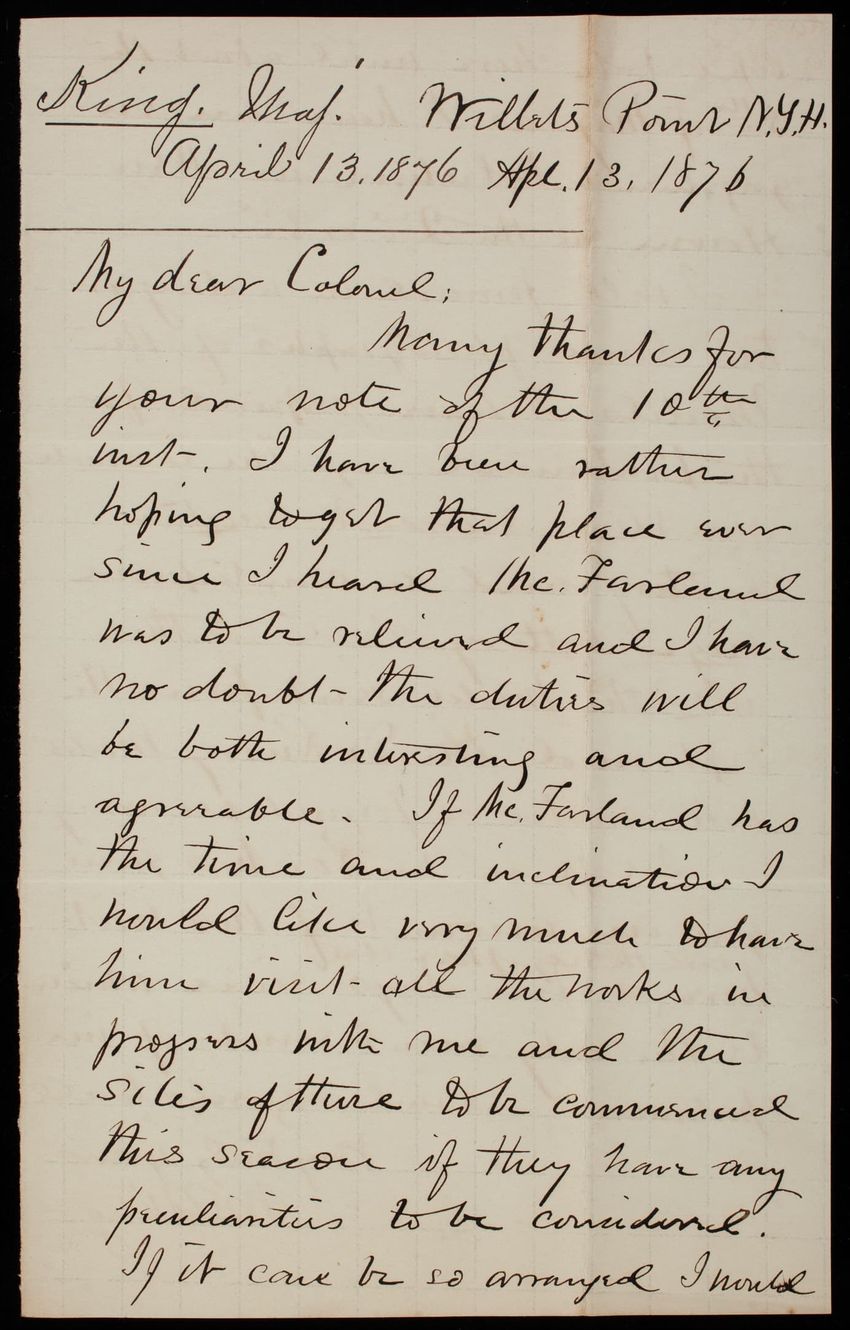 King. Maj. Willets Point N.Y.H.
April 13. 1876 Apl. 13, 1876
My dear Colonel;
Many thanks for
your note of the 10th
inst. I have been rather
hoping to get that place ever
since I heard Mc. Farland
was to be relieved and I have
no doubt the duties will
be both interesting and
agreeable. If Mc. Farland has
the time and inclination I
would like very much to have
him visit all the works in
progress with me and the
sites of those to be commenced
this season if they have any
peculiarities to be considered.
If it can be so arranged I would